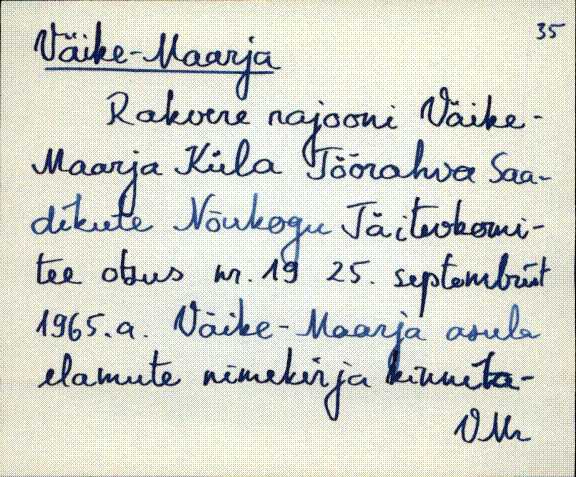 35
Väike-Maarja
Rakvere rajooni Väike-
Maarja Küla Töörahva Saa-
dikute Nõukogu Täitevkomi-
tee otsus nr. 19 25. septembrist
1965.a. Väike-Maarja asula
elamute nimekirja kinnita-
VMr